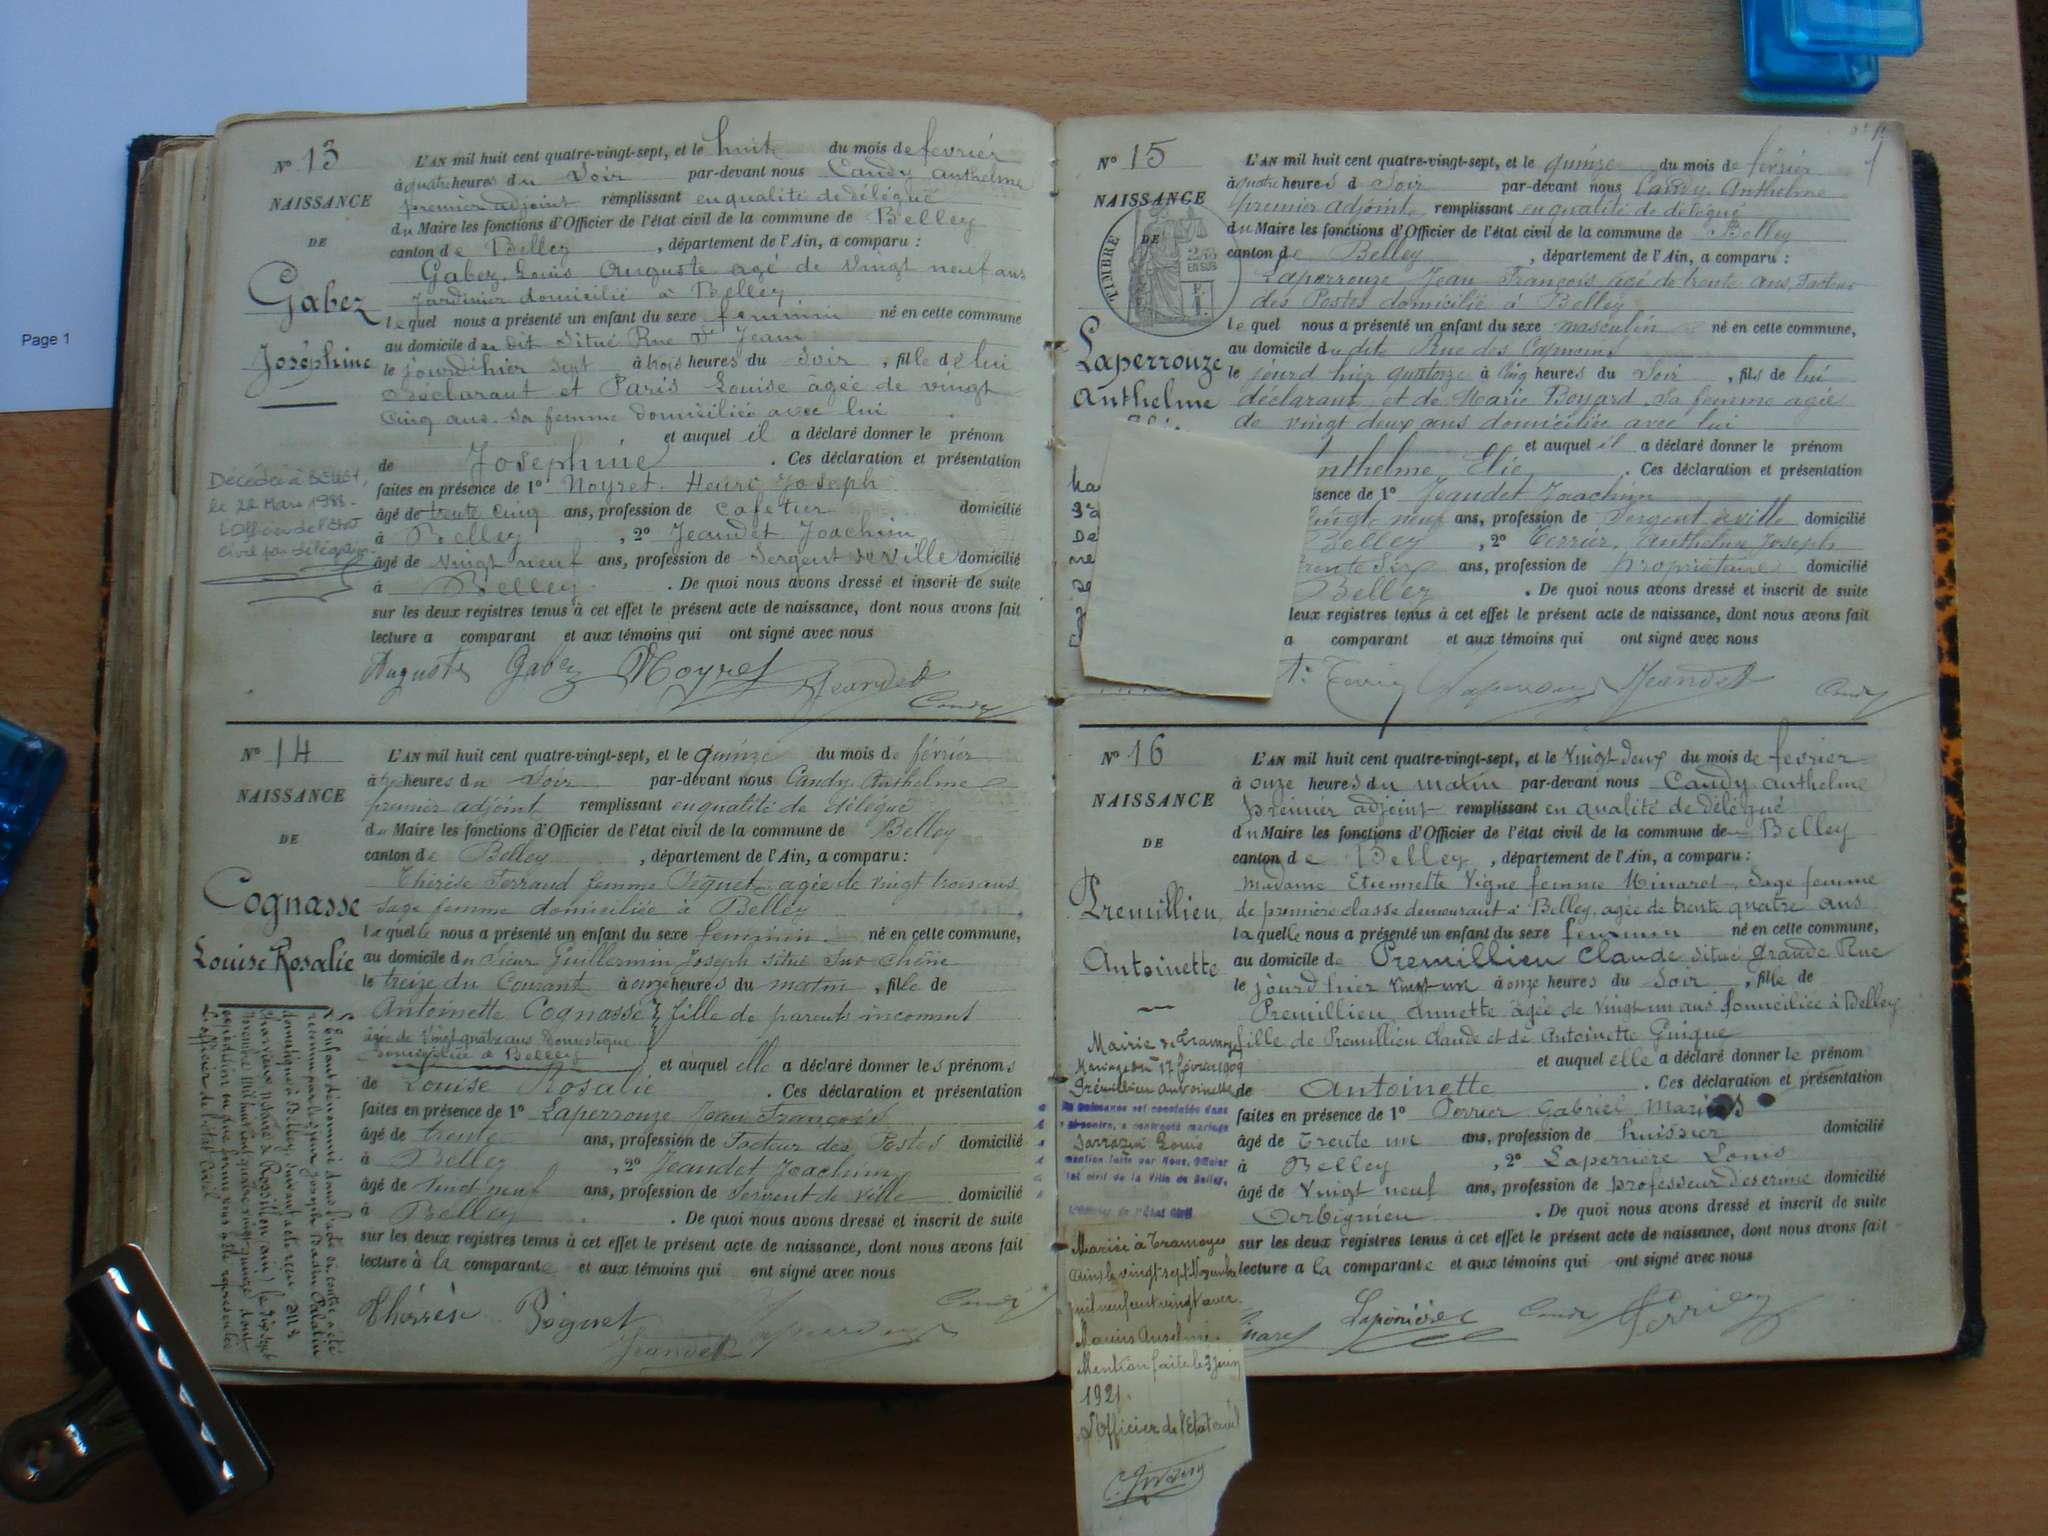 Page 1
N° 13
NAISSANCE
DE
Gabez
Joséphine
L'AN mil huit cent quatre-vingt-sept, et le huit du mois de février
à quatre heures du Soir par-devant nous Candy Anthelme
premier adjoint remplissant en qualité de délégué
du Maire les fonctions d'Officier de l'état civil de la commune de Belley
canton de Belley, département de l'Ain, a comparu :
Gabez Louis Auguste agé de vingt neuf ans
Jardinier domicilié à Belley
lequel nous a présenté un enfant du sexe feminin né en cette commune
au domicile du dit Situé Rue St Jean
le jourd'hier sept à trois heures du Soir, fille de lui
Déclarant et Paris Louise âgée de vingt
Cinq ans sa femme domiciliée avec lui
et auquel il a déclaré donner le prénom
de Joséphine. Ces déclaration et présentation
faites en présence de 1° Noyret Henri Joseph
âgé de trente cinq ans, profession de cafetier domicilié
à Belley, 2° Jeandet Joachim
âgé de vingt neuf ans, profession de Sergent de Ville domicilié
à Belley. De quoi nous avons dressé et inscrit de suite
sur les deux registres tenus à cet effet le présent acte de naissance, dont nous avons fait
lecture a comparant et aux témoins qui ont signé avec nous
Auguste Gabez Noyret Jeandet
Candy
Décédée à Belley,
le 22 Mars 1988.
L'Officier de l'état
Civil par délégation.
N° 14
NAISSANCE
DE
Cognasse
Louise Rosalie
L'AN mil huit cent quatre-vingt-sept, et le quinze du mois de février
à heures du Soir par-devant nous Candy Anthelme
premier adjoint remplissant en qualité de délégué
du Maire les fonctions d'Officier de l'état civil de la commune de Belley
canton de Belley, département de l'Ain, a comparu :
Thérèse Ferraud femme Peguet agée de vingt trois ans
Sage femme domiciliée à Belley
laquelle nous a présenté un enfant du sexe feminin né en cette commune,
au domicile du Sieur Guillermin Joseph situé Sur Chêne
le treize du Courant à onze heures du matin, fille de
Antoinette Cognasse fille de parents inconnus
âgée de vingt quatre ans Domestique
domiciliée à Belley
et auquel elle a déclaré donner les prénoms
de Louise Rosalie. Ces déclaration et présentation
faites en présence de 1° Laperrouze Jean François
âgé de trente ans, profession de Facteur des Postes domicilié
à Belley, 2° Jeandet Joachim
âgé de vingt neuf ans, profession de Sergent de Ville domicilié
à Belley. De quoi nous avons dressé et inscrit de suite
sur les deux registres tenus à cet effet le présent acte de naissance, dont nous avons fait
lecture à la comparante et aux témoins qui ont signé avec nous
Thérèse Péguet Candy
Jeandet
L'Enfant dénommé dans l'acte ci contre a été
reconnu par le sieur Joseph Bassin Palatin
domicilié à Belley, suivant acte reçu
notaire à Rossillon (Ain) le dix sept
novembre mil huit cent quatre vingt quinze dont
expédition en due forme nous a été représentée
L'officier de l'état civil
N° 15
NAISSANCE
DE
TIMBRE
Laperrouze
Anthelme
L'AN mil huit cent quatre-vingt-sept, et le quinze du mois de février
à quatre heures d Soir par-devant nous Candy Anthelme
premier adjoint remplissant en qualité de délégué
du Maire les fonctions d'Officier de l'état civil de la commune de Belley
canton de Belley, département de l'Ain, a comparu :
Laperrouze Jean François âgé de trente ans, Facteur
des Postes domicilié à Belley
lequel nous a présenté un enfant du sexe masculin né en cette commune,
au domicile du dit Rue des Capucins
le jourd'hier quatorze à Cinq heures du Soir, fils de lui
déclarant et de Marie Boyard sa femme agée
de vingt deux ans domiciliée avec lui
et auquel il a déclaré donner le prénom
nthelme Elie. Ces déclaration et présentation
sence de 1° Jeandet Joachim
vingt neuf ans, profession de Sergent de ville domicilié
Belley, 2° Terrier, Anthelme Joseph
trente Six ans, profession de propriétaire domicilié
Belley. De quoi nous avons dressé et inscrit de suite
deux registres tenus à cet effet le présent acte de naissance, dont nous avons fait
a comparant et aux témoins qui ont signé avec nous
Jeandet Candy
N° 16
NAISSANCE
DE
Premillieu
Antoinette
L'AN mil huit cent quatre-vingt-sept, et le vingt deux du mois de fevrier
à onze heures du matin par-devant nous Candy Anthelme
premier adjoint remplissant en qualité de délégué
du Maire les fonctions d'Officier de l'état civil de la commune de Belley
canton de Belley, département de l'Ain, a comparu :
Madame Etiennette Vigne femme Minaret, Sage femme
de première classe demeurant à Belley, agée de trente quatre ans
laquelle nous a présenté un enfant du sexe feminin né en cette commune,
au domicile de Premillieu Claude situé Grande Rue
le jourd'hier vingt un à onze heures du Soir, fille de
Premillieu, Annette agée de vingt un ans domiciliée à Belley
fille de Premillieu Claude et de Antoinette Guigue
et auquel elle a déclaré donner le prénom
de Antoinette. Ces déclaration et présentation
faites en présence de 1° Perrier Gabriel Marius
âgé de Trente un ans, profession de huissier domicilié
à Belley, 2° Laperrière Louis
âgé de Vingt neuf ans, profession de professeur d'escrime domicilié
Arbignieu. De quoi nous avons dressé et inscrit de suite
sur les deux registres tenus à cet effet le présent acte de naissance, dont nous avons fait
lecture a la comparante et aux témoins qui ont signé avec nous
Laperrière Candy Perrier
Mairie de Tramoyes
Mariage du 17 février 1909
Prémillieu Antoinette
la naissance est constatée dans
ci-contre, a contracté mariage
Sarrazin Louis
mention faite par Nous, Officier
état civil de la Ville de Belley,
L'Officier de l'État Civil
Mariée à Tramoyes
Ain, le vingt sept Novembre
mil neuf cent vingt avec
Marius Anselme.
Mention faite le 3 Juin
1921.
L'Officier de l'Etat civil